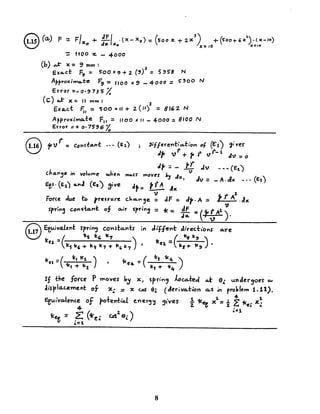 1.15 (a) F = F|x₀ + dF/dx|x₀ · (x - x₀) = (500 x + 2 x³)|x=10 + (500 + 6 x²)|x=10 · (x - 10)
= 1100 x - 4000
(b) at x = 9 mm :
Exact F₉ = 500 × 9 + 2 (9)³ = 5958 N
Approximate F₉ = 1100 × 9 - 4000 = 5900 N
Error = - 0.9735 %
(c) at x = 11 mm :
Exact F₁₁ = 500 × 11 + 2 (11)³ = 8162 N
Approximate F₁₁ = 1100 × 11 - 4000 = 8100 N
Error = - 0.7596 %
1.16 p v^γ = constant --- (E₁) ; Differentiation of (E₁) gives
dp v^γ + p γ v^(γ-1) dv = 0
dp = - pγ/v dv --- (E₂)
change in volume when mass moves by dx, dv = - A · dx --- (E₃)
Eqs. (E₂) and (E₃) give dp = pγA/v dx
Force due to pressure change = dF = dp · A = pγA²/v dx
spring constant of air spring = k = dF/dx = (pγA²/v)
1.17 Equivalent spring constants in different directions are
ke1 = (k5 k6 k7 / (k5 k6 + k5 k7 + k6 k7)) , ke2 = (k8 k9 / (k8 + k9)) ,
ke3 = (k1 k2 / (k1 + k2)) , ke4 = (k3 k4 / (k3 + k4))
If the force P moves by x, spring located at θi undergoes a
displacement of xi = x cos θi (derivation as in problem 1.11).
Equivalence of potential energy gives ½ keq x² = ½ Σ(i=1 to 4) kei xi²
keq = Σ(i=1 to 4) (kei cos² θi)
8